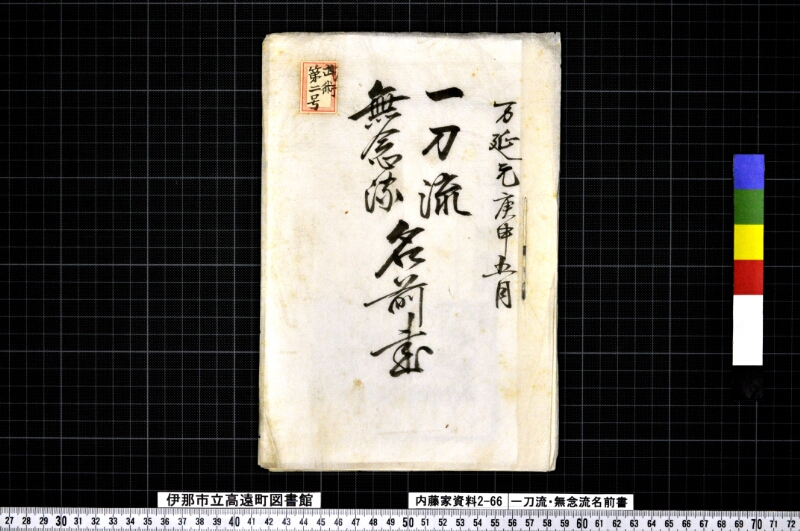 万延元庚申五月
一刀流
無念流
名前書
武術
第二号
伊那市立高遠町図書館
内藤家資料2-66 一刀流・無念流名前書
27 28 29 30 31 32 33 34 35 36 37 38 39 40 41 42 43 44 45 46 47 48 49 50 51 52 53 54 55 56 57 58 59 60 61 62 63 64 65 66 67 68 69 70 71 72